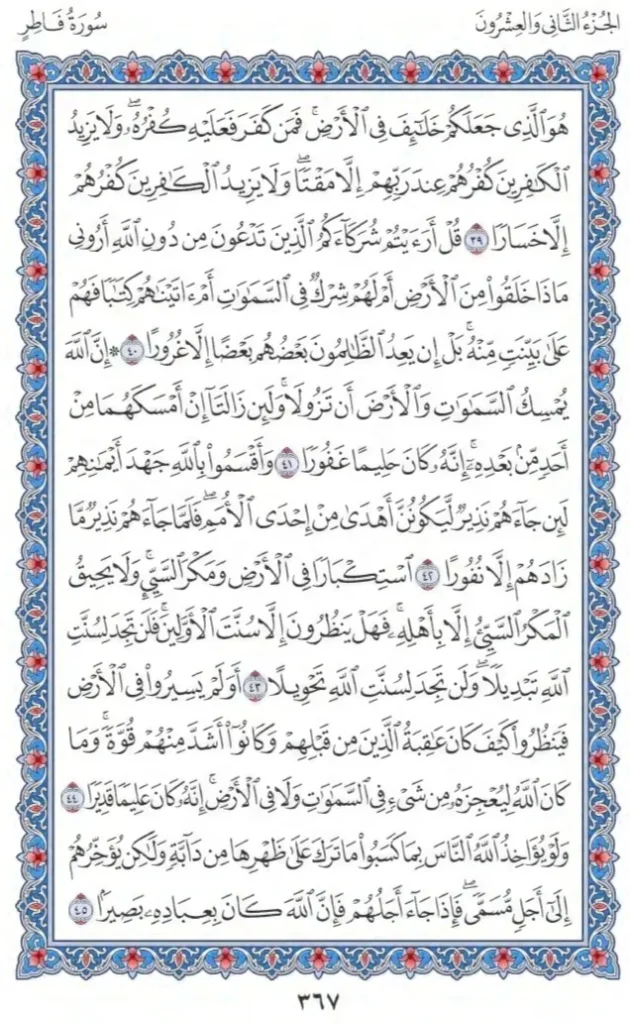 الجُزْءُ الثَّانِي وَالعِشْرُونَ
سُورَةُ فَاطِرٍ
هُوَ ٱلَّذِى جَعَلَكُمْ خَلَٰٓئِفَ فِى ٱلْأَرْضِ ۚ فَمَن كَفَرَ فَعَلَيْهِ كُفْرُهُۥ ۖ وَلَا يَزِيدُ
ٱلْكَٰفِرِينَ كُفْرُهُمْ عِندَ رَبِّهِمْ إِلَّا مَقْتًا ۖ وَلَا يَزِيدُ ٱلْكَٰفِرِينَ كُفْرُهُمْ
إِلَّا خَسَارًا ٣٩ قُلْ أَرَءَيْتُمْ شُرَكَآءَكُمُ ٱلَّذِينَ تَدْعُونَ مِن دُونِ ٱللَّهِ أَرُونِى
مَاذَا خَلَقُوا۟ مِنَ ٱلْأَرْضِ أَمْ لَهُمْ شِرْكٌ فِى ٱلسَّمَٰوَٰتِ أَمْ ءَاتَيْنَٰهُمْ كِتَٰبًا فَهُمْ
عَلَىٰ بَيِّنَتٍ مِّنْهُ ۚ بَلْ إِن يَعِدُ ٱلظَّٰلِمُونَ بَعْضُهُم بَعْضًا إِلَّا غُرُورًا ٤٠ ۞ إِنَّ ٱللَّهَ
يُمْسِكُ ٱلسَّمَٰوَٰتِ وَٱلْأَرْضَ أَن تَزُولَا ۚ وَلَئِن زَالَتَآ إِنْ أَمْسَكَهُمَا مِنْ
أَحَدٍ مِّنۢ بَعْدِهِۦٓ ۚ إِنَّهُۥ كَانَ حَلِيمًا غَفُورًا ٤١ وَأَقْسَمُوا۟ بِٱللَّهِ جَهْدَ أَيْمَٰنِهِمْ
لَئِن جَآءَهُمْ نَذِيرٌ لَّيَكُونُنَّ أَهْدَىٰ مِنْ إِحْدَى ٱلْأُمَمِ ۖ فَلَمَّا جَآءَهُمْ نَذِيرٌ مَّا
زَادَهُمْ إِلَّا نُفُورًا ٤٢ ٱسْتِكْبَارًا فِى ٱلْأَرْضِ وَمَكْرَ ٱلسَّيِّئِ ۚ وَلَا يَحِيقُ
ٱلْمَكْرُ ٱلسَّيِّئُ إِلَّا بِأَهْلِهِۦ ۚ فَهَلْ يَنظُرُونَ إِلَّا سُنَّتَ ٱلْأَوَّلِينَ ۚ فَلَن تَجِدَ لِسُنَّتِ
ٱللَّهِ تَبْدِيلًا ۖ وَلَن تَجِدَ لِسُنَّتِ ٱللَّهِ تَحْوِيلًا ٤٣ أَوَلَمْ يَسِيرُوا۟ فِى ٱلْأَرْضِ
فَيَنظُرُوا۟ كَيْفَ كَانَ عَٰقِبَةُ ٱلَّذِينَ مِن قَبْلِهِمْ وَكَانُوٓا۟ أَشَدَّ مِنْهُمْ قُوَّةً ۚ وَمَا
كَانَ ٱللَّهُ لِيُعْجِزَهُۥ مِن شَىْءٍ فِى ٱلسَّمَٰوَٰتِ وَلَا فِى ٱلْأَرْضِ ۚ إِنَّهُۥ كَانَ عَلِيمًا قَدِيرًا ٤٤
وَلَوْ يُؤَاخِذُ ٱللَّهُ ٱلنَّاسَ بِمَا كَسَبُوا۟ مَا تَرَكَ عَلَىٰ ظَهْرِهَا مِن دَآبَّةٍ وَلَٰكِن يُؤَخِّرُهُمْ
إِلَىٰٓ أَجَلٍ مُّسَمًّى ۖ فَإِذَا جَآءَ أَجَلُهُمْ فَإِنَّ ٱللَّهَ كَانَ بِعِبَادِهِۦ بَصِيرًۢا ٤٥
٣٦٧